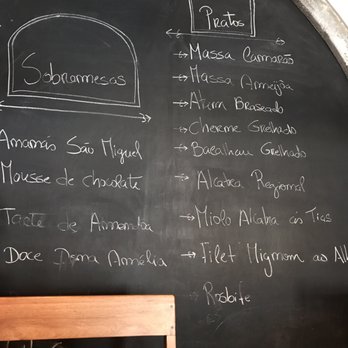 Sobremesas
Ananás São Miguel
Mousse de chocolate
Tarte de Amêndoa
Doce Dona Amélia
Pratos
→ Massa Camarão
→ Massa Ameijôa
→ Atum Braseado
→ Cherme Grelhado
→ Bacalhau Grelhado
→ Alcatra Regional
→ Miolo Alcatra as Tias
→ Filet Mignom ao
→ Rosbife